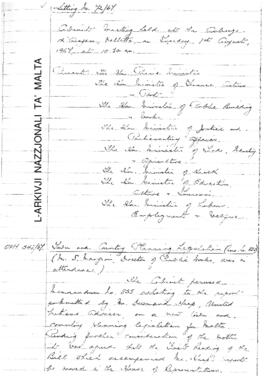 Sitting No. 72/67
Cabinet Meeting held at the Auberge
d'Aragon, Valletta, on Tuesday, 1st August,
1967, at 10.30 a.m.
Present: The Hon. Prime Minister
The Hon. Minister of Finance, Customs
& Ports
The Hon. Minister of Public Building
& Works
The Hon. Minister of Justice and
Parliamentary Affairs
The Hon. Minister of Trade, Industry
& Agriculture
The Hon. Minister of Health
The Hon. Minister of Education
Culture & Tourism
The Hon. Minister of Labour
Employment & Welfare
L-ARKIVJI NAZZJONALI TA' MALTA
Town and Country Planning Legislation
(Mr. S. Mangion, Director of Public Works, was in
attendance)
The Cabinet perused
Memorandum No. 535 relating to the report
submitted by Mr. Desmond Heap, United
Nations Adviser on a new Town and
Country Planning legislation for Malta.
Pending further consideration of the matter
it was agreed that the First Reading of the
Bill which accompanied Mr. Heap's report
be moved in the House of Representatives.